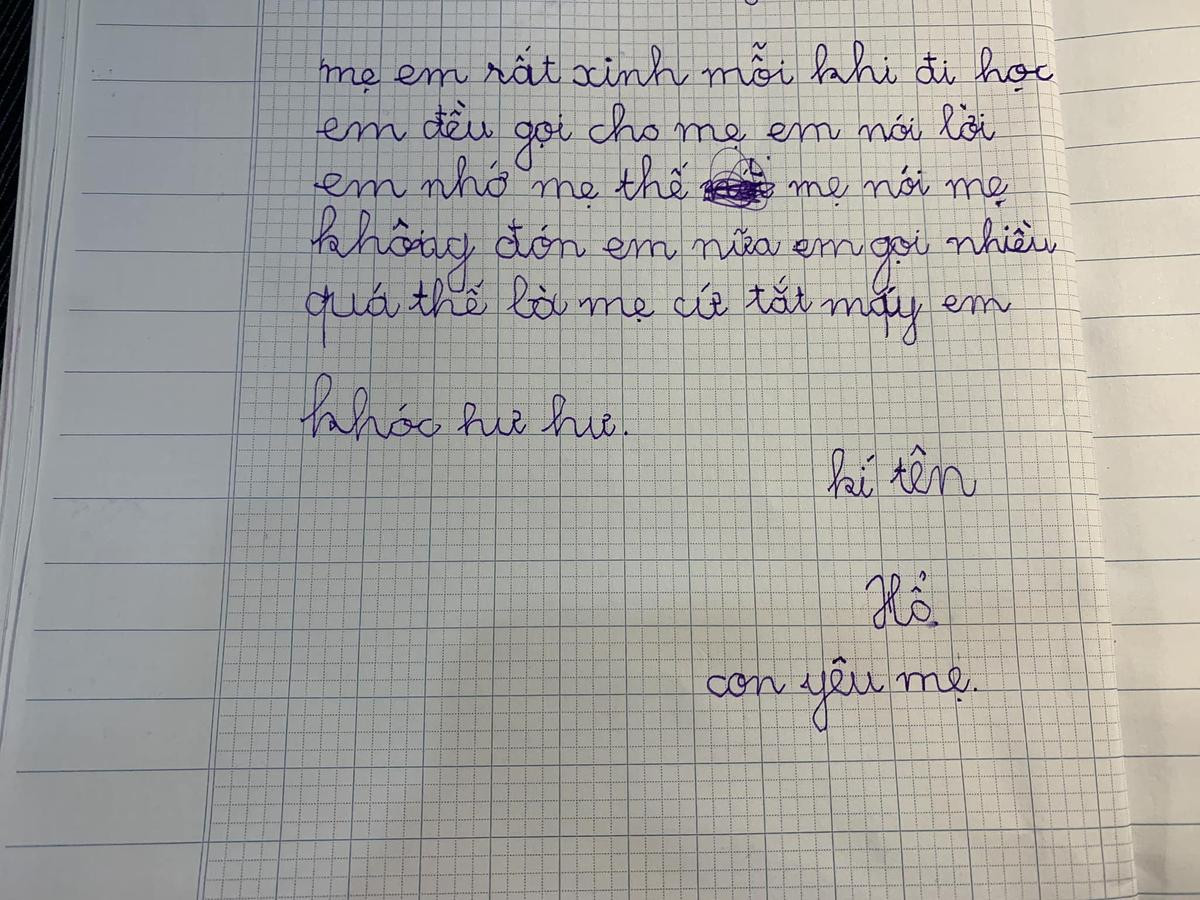 mẹ em rất xinh mỗi khi đi học
em đều gọi cho mẹ em nói lời
em nhớ mẹ thế mẹ nói mẹ
không đón em nữa em gọi nhiều
quá thế là mẹ cứ tắt mấy em
khóc hư hư.
kí tên
Hổ
con yêu mẹ.